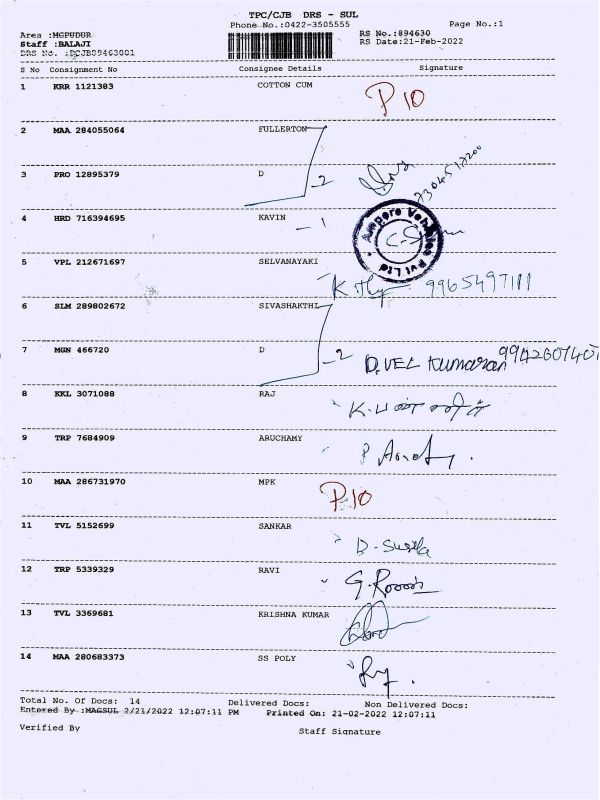 TPC/CJB DRS - SUL
Phone No.:0422-3505555 Page No.:1
Area :MGPUDUR RS No.:894630
Staff :BALAJI RS Date:21-Feb-2022
DRS No. :DCJB89463001
S No Consignment No Consignee Details Signature
1 KRR 1121383 COTTON CUM P 10
2 MAA 284055064 FULLERTON
3 PRO 12895379 D 2
4 HRD 716394695 KAVIN - 1
Ampere Vehicles Pvt Ltd
5 VPL 212671697 SELVANAYAKI
9965497111
6 SLM 289802672 SIVASHAKTHI
7 MGN 466720 D 2 D.VEL Kumaran
8 KKL 3071088 RAJ
9 TRP 7684909 ARUCHAMY
10 MAA 286731970 MPK P 10
11 TVL 5152699 SANKAR
12 TRP 5339329 RAVI
13 TVL 3369681 KRISHNA KUMAR
14 MAA 280683373 SS POLY
Total No. Of Docs: 14 Delivered Docs: Non Delivered Docs:
Entered By :MAGSUL 2/21/2022 12:07:11 PM Printed On: 21-02-2022 12:07:11
Verified By Staff Signature